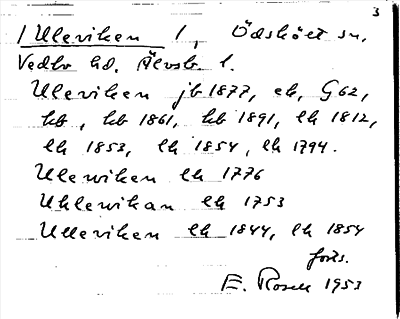 3
/ Uleviken /, Ödskölt sn,
Vedbo hd. Älvsb. l.
Uleviken jb 1877, ek, G 62,
hb, hb 1861, hb 1891, lh 1812,
lh 1853, lh 1854, lh 1794.
Ulewiken lh 1776
Uhlewikan lh 1753
Ulleviken lh 1844, lh 1854
forts.
E. Rosell 1953